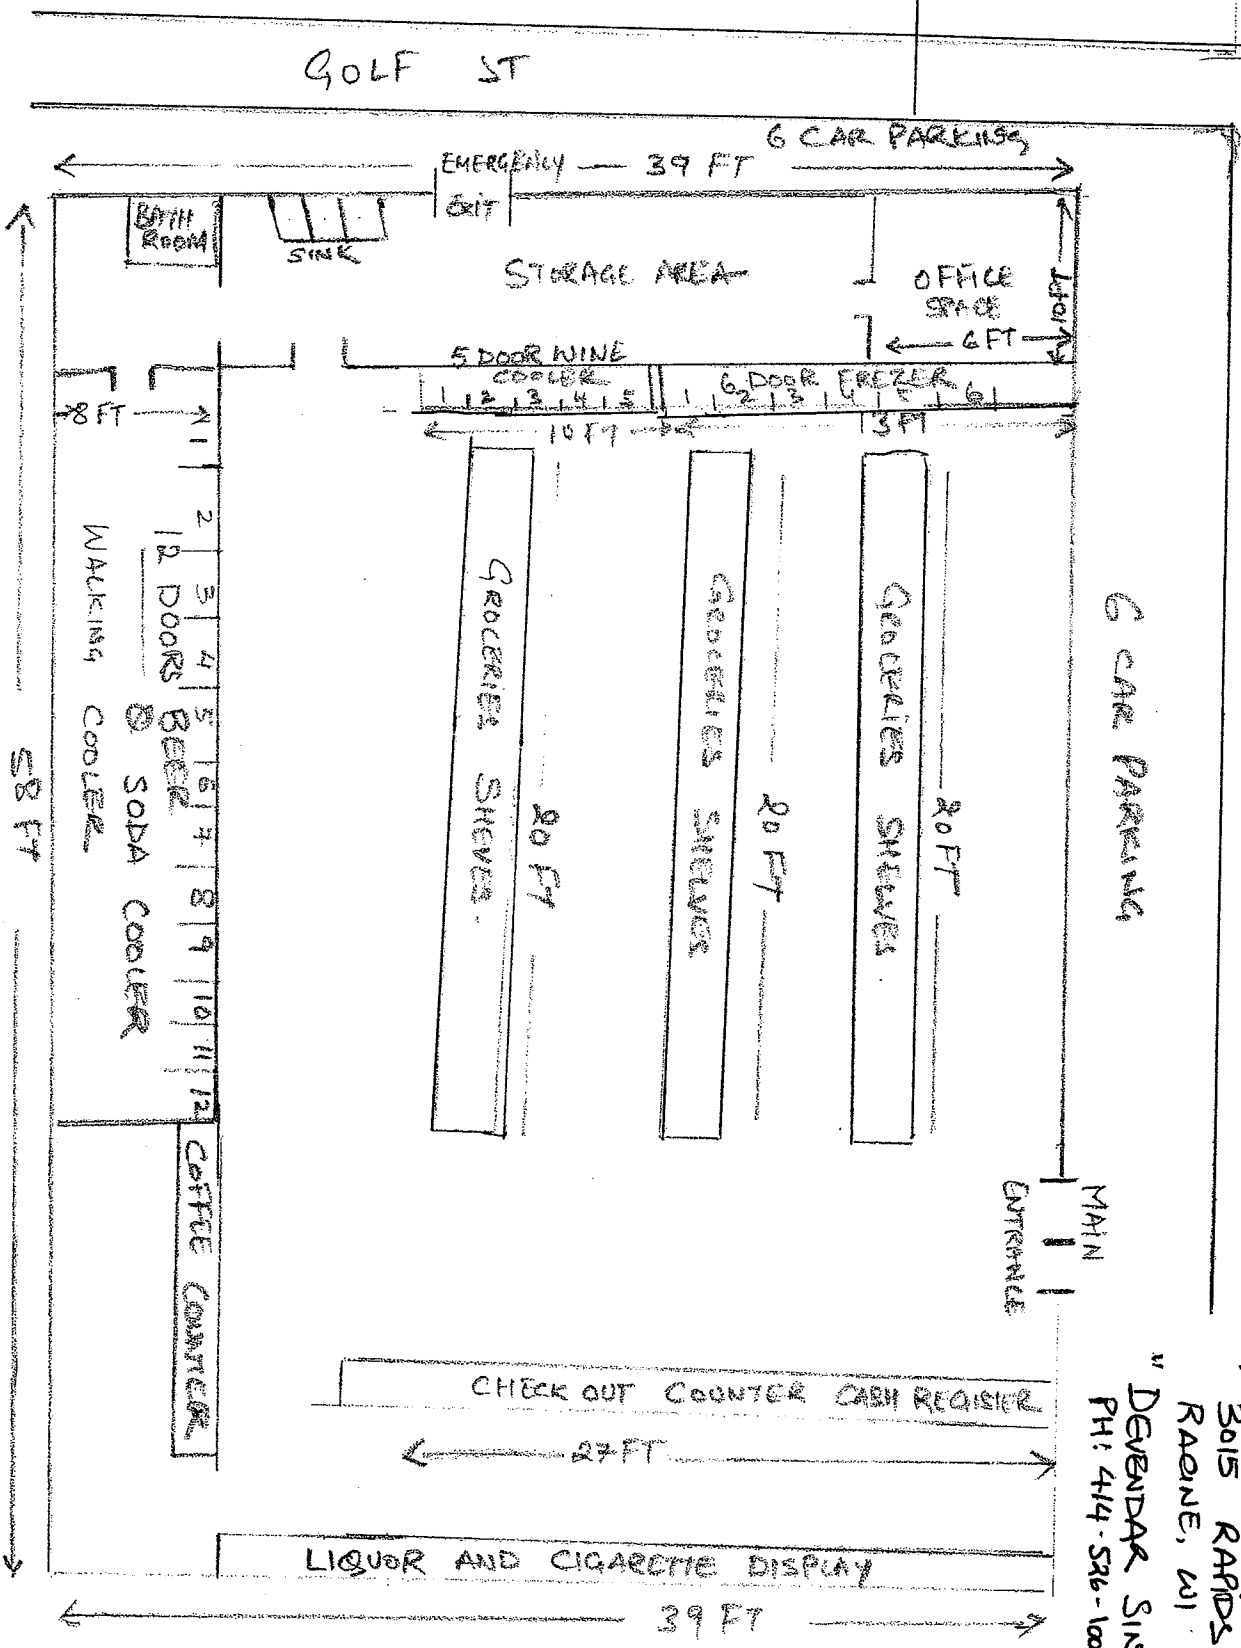 GOLF ST
6 CAR PARKING
39 FT
EMERGENCY
EXIT
BATH
ROOM
SINK
STORAGE AREA
OFFICE
SPACE
6 FT
5 DOOR WINE
COOLER
1 2 3 4 5
6 DOOR FREZER
1 2 3 4 5 6
10 FT
13 FT
8 FT
58 FT
1 2 3 4 5 6 7 8 9 10 11 12
12 DOORS BEER
SODA COOLER
WALKING COOLER
GROCERIES SHEVES.
20 FT
GROCERIES SHELVES
20 FT
GROCERIES SHELVES.
20 FT
6 CAR PARKING
MAIN
ENTRANCE
COFFEE COUNTER
CHECK OUT COUNTER CASH REGISTER
27 FT
LIQUOR AND CIGARETTE DISPLAY
39 FT
3015 RAPIDS
RACINE, WI.
" DEVENDAR
PH: 414-526-